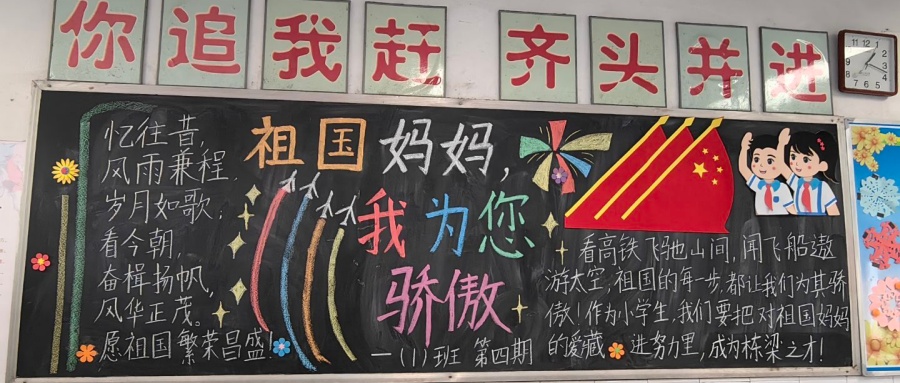 你追我赶 齐头并进
忆往昔,
风雨兼程,
岁月如歌;
看今朝,
奋楫扬帆,
风华正茂。
愿祖国繁荣昌盛!
祖国妈妈,
我为您
骄傲
一(1)班 第四期
看高铁飞驰山间,闻飞船遨
游太空,祖国的每一步,都让我们为其骄
傲!作为小学生,我们要把对祖国妈妈
的爱藏进努力里,成为栋梁之才!
11 12 1
10 2
9 3
8 4
7 6 5